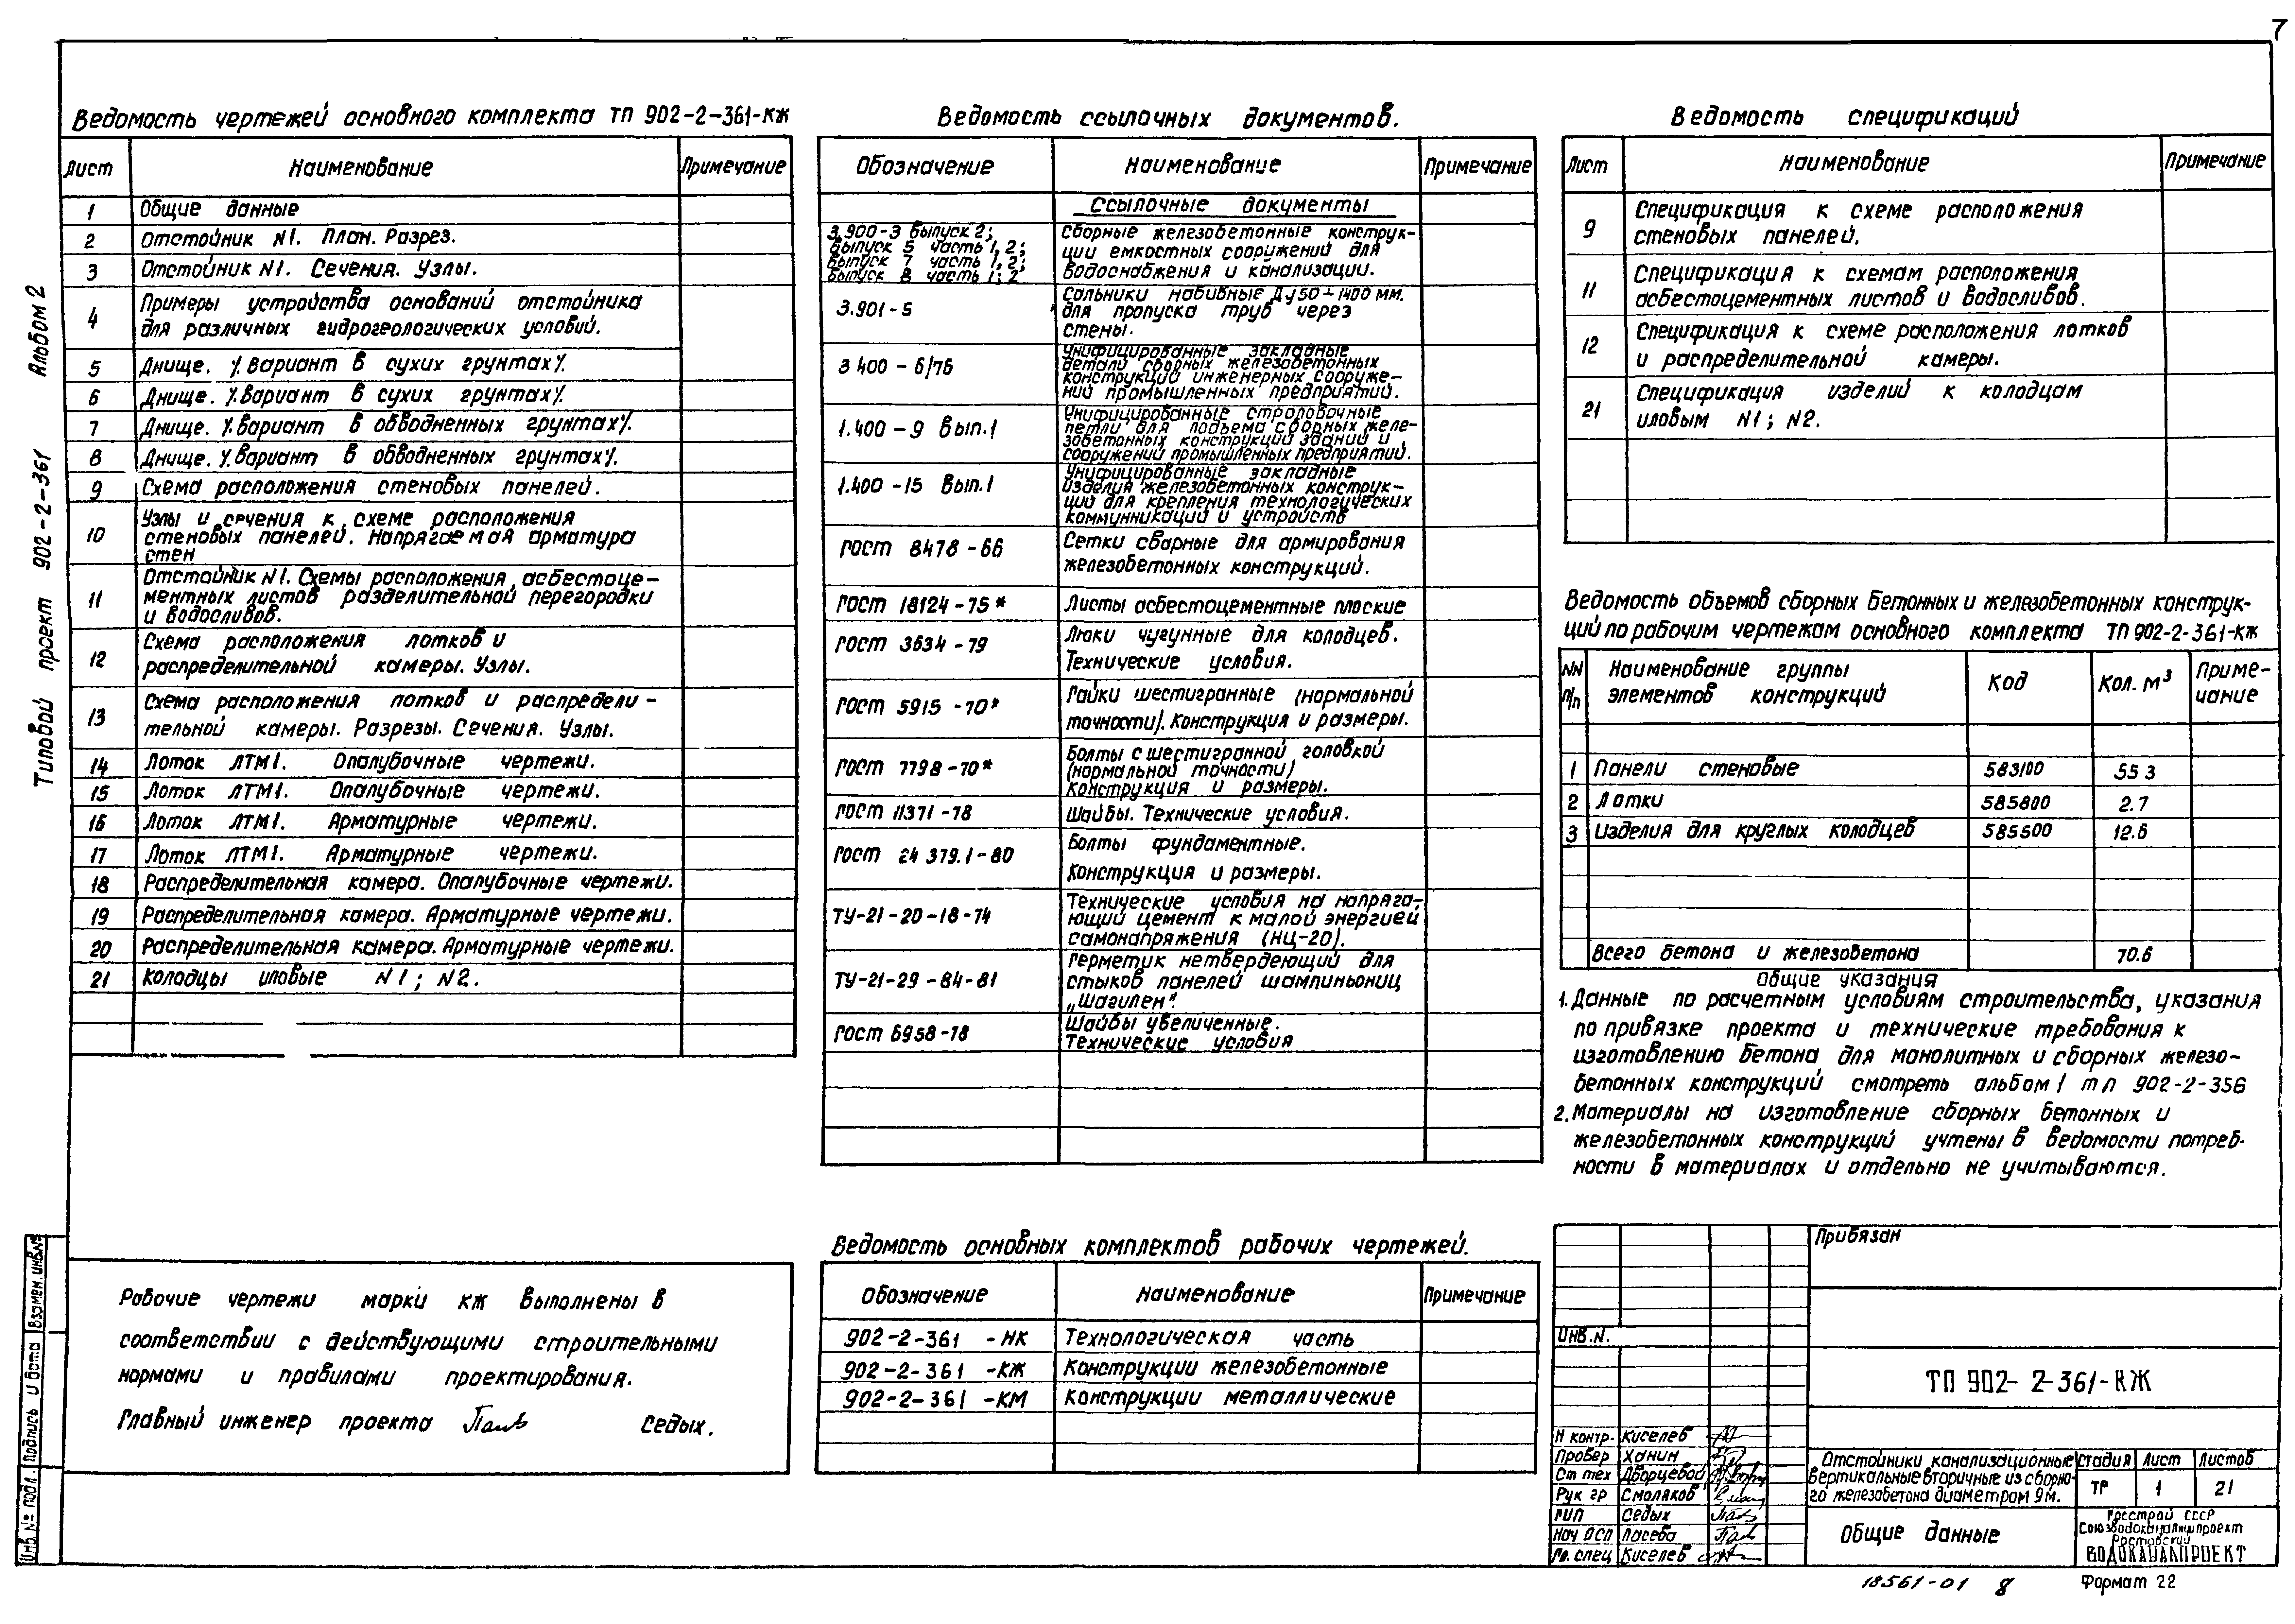 7
Ведомость чертежей основного комплекта ТП 902-2-361-КЖ
Лист Наименование Примечание
1 Общие данные
2 Отстойник N1. План. Разрез.
3 Отстойник N1. Сечения. Узлы.
4 Примеры устройства оснований отстойника
для различных гидрогеологических условий.
5 Днище. /.Вариант в сухих грунтах/.
6 Днище. /.Вариант в сухих грунтах/.
7 Днище. /.Вариант в обводненных грунтах/.
8 Днище. /.Вариант в обводненных грунтах/.
9 Схема расположения стеновых панелей.
10 Узлы и сечения к схеме расположения
стеновых панелей. Напрягаемая арматура
стен
11 Отстойник N1. Схемы расположения асбестоце-
ментных листов разделительной перегородки
и водосливов.
12 Схема расположения лотков и
распределительной камеры. Узлы.
13 Схема расположения лотков и распредели-
тельной камеры. Разрезы. Сечения. Узлы.
14 Лоток ЛТМ1. Опалубочные чертежи.
15 Лоток ЛТМ1. Опалубочные чертежи.
16 Лоток ЛТМ1. Арматурные чертежи.
17 Лоток ЛТМ1. Арматурные чертежи.
18 Распределительная камера. Опалубочные чертежи.
19 Распределительная камера. Арматурные чертежи.
20 Распределительная камера. Арматурные чертежи.
21 Колодцы иловые N1; N2.
Ведомость ссылочных документов.
Обозначение Наименование Примечание
Ссылочные документы
3.900-3 выпуск 2;
выпуск 5 часть 1,2;
выпуск 7 часть 1,2;
выпуск 8 часть 1;2
Сборные железобетонные конструк-
ции емкостных сооружений для
водоснабжения и канализации.
3.901-5 Сальники набивные Ду 50÷1400 мм.
для пропуска труб через
стены.
3 400-6/76 Унифицированные закладные
детали сборных железобетонных
конструкций инженерных сооруже-
ний промышленных предприятий.
1.400-9 Вып.1 Унифицированные строповочные
петли для подъема сборных желе-
зобетонных конструкций зданий и
сооружений промышленных предприятий.
1.400-15 Вып.1 Унифицированные закладные
изделия железобетонных конструк-
ций для крепления технологических
коммунникаций и устройств
ГОСТ 8478-66 Сетки сварные для армирования
железобетонных конструкций.
ГОСТ 18124-75* Листы асбестоцементные плоские
ГОСТ 3634-79 Люки чугунные для колодцев.
Технические условия.
ГОСТ 5915-70* Гайки шестигранные (нормальной
точности). Конструкция и размеры.
ГОСТ 7798-70* Болты с шестигранной головкой
(нормальной точности)
Конструкция и размеры.
ГОСТ 11371-78 Шайбы. Технические условия.
ГОСТ 24 379.1-80 Болты фундаментные.
Конструкция и размеры.
ТУ-21-20-18-74 Технические условия на напряга-
ющий цемент к малой энергией
самонапряжения (НЦ-20).
ТУ-21-29-84-81 Герметик нетвердеющий для
стыков панелей шампиньониц
„Шагилен".
ГОСТ 6958-78 Шайбы увеличенные.
Технические условия
Ведомость спецификаций
Лист Наименование Примечание
9 Спецификация к схеме расположения
стеновых панелей.
11 Спецификация к схемам расположения
асбестоцементных листов и водосливов.
12 Спецификация к схеме расположения лотков
и распределительной камеры.
21 Спецификация изделий к колодцам
иловым N1; N2.
Ведомость объемов сборных бетонных и железобетонных конструк-
ций по рабочим чертежам основного комплекта ТП 902-2-361-КЖ
NN п/п Наименование группы элементов конструкций Код Кол. м³ Приме-
чание
1 Панели стеновые 583100 55 3
2 Лотки 585800 2.7
3 Изделия для круглых колодцев 585500 12.6
Всего бетона и железобетона 70.6
Общие указания
1. Данные по расчетным условиям строительства, указания
по привязке проекта и технические требования к
изготовлению бетона для монолитных и сборных железо-
бетонных конструкций смотреть альбом 1 тп 902-2-356
2. Материалы на изготовление сборных бетонных и
железобетонных конструкций учтены в ведомости потреб-
ности в материалах и отдельно не учитываются.
Рабочие чертежи марки КЖ выполнены в
соответствии с действующими строительными
нормами и правилами проектирования.
Главный инженер проекта Седых.
Ведомость основных комплектов рабочих чертежей.
Обозначение Наименование Примечание
902-2-361 -НК Технологическая часть
902-2-361 -КЖ Конструкции железобетонные
902-2-361 -КМ Конструкции металлические
Привязан
Инв.N.
ТП 902-2-361-КЖ
Н контр. Киселев
Провер Ханин
Ст тех Дворцевой
Рук гр Смоляков
ГИП Седых
Нач ОСП Ласева
Гл. спец Киселев
Отстойники канализационные
вертикальные вторичные из сборно-
го железобетона диаметром 9м.
Стадия Лист Листов
ТР 1 21
Общие данные
Госстрой СССР
Союзводоканалниипроект
Ростовский
ВОДОКАНАЛПРОЕКТ
18561-01 8
Формат 22
Типовой проект 902-2-361 Альбом 2
Инв. № подл. Подпись и дата Взамен. инв.№